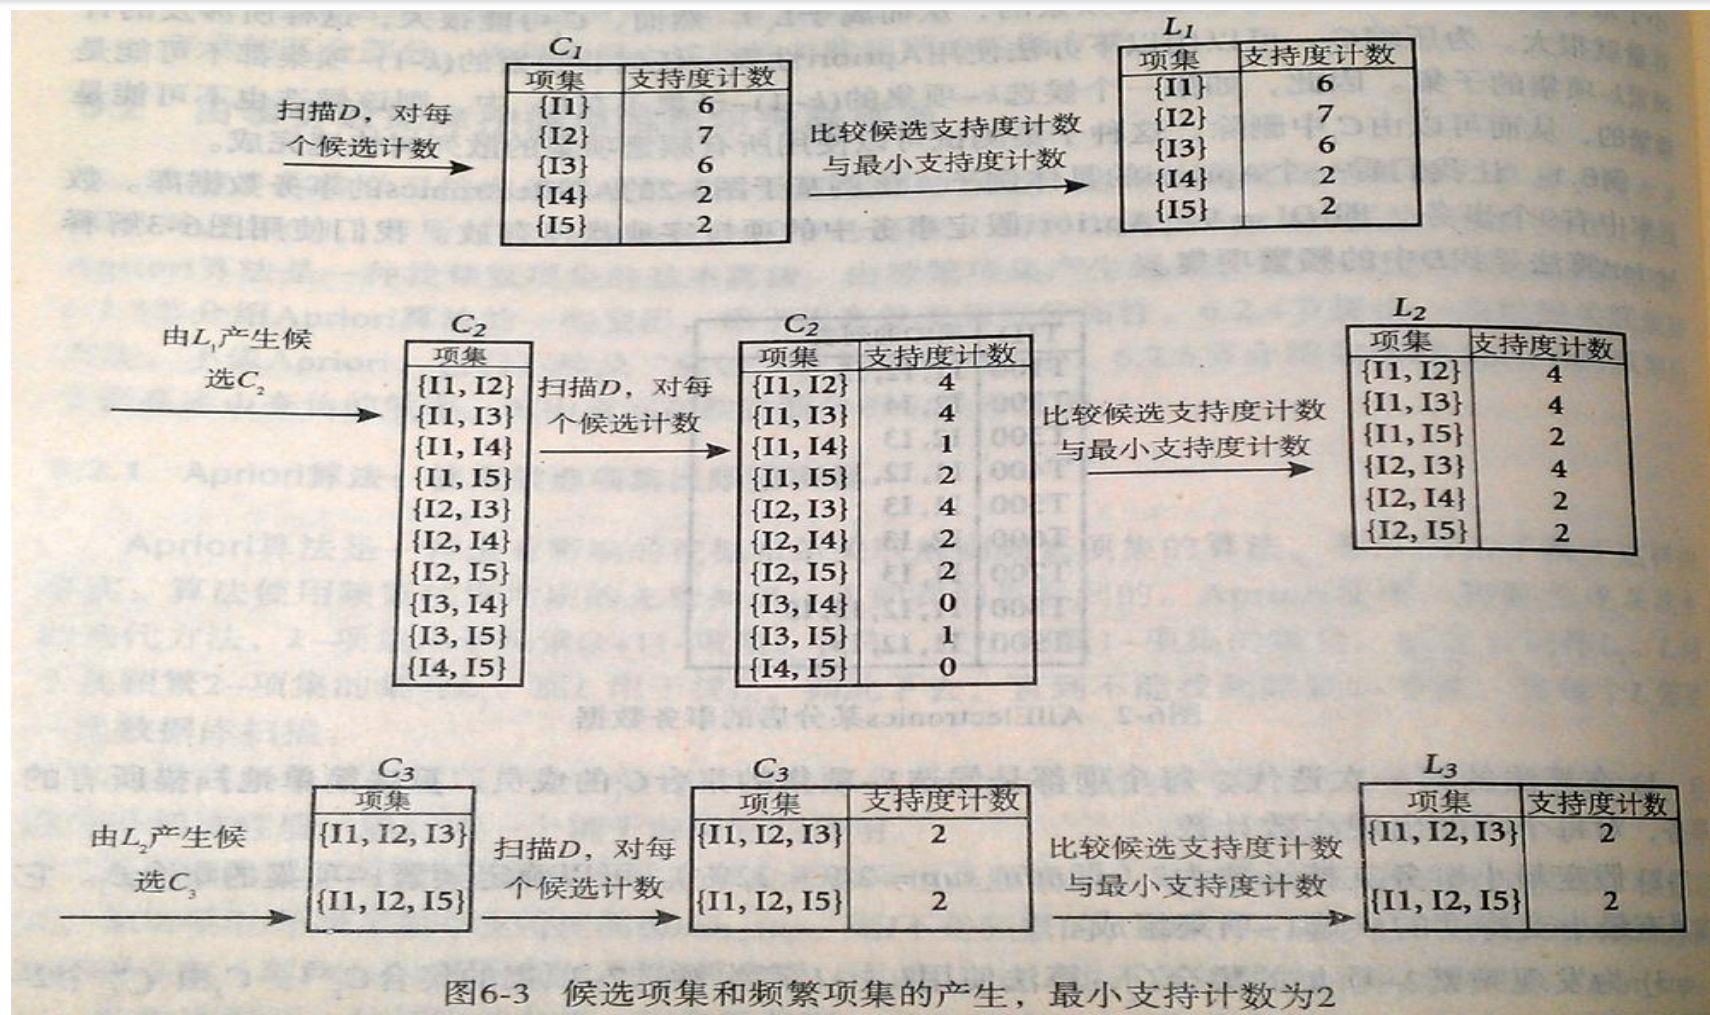 C₁
项集 支持度计数
{I1} 6
{I2} 7
{I3} 6
{I4} 2
{I5} 2
扫描D，对每
个候选计数
比较候选支持度计数
与最小支持度计数
L₁
项集 支持度计数
{I1} 6
{I2} 7
{I3} 6
{I4} 2
{I5} 2
由L₁产生候
选C₂
C₂
项集
{I1, I2}
{I1, I3}
{I1, I4}
{I1, I5}
{I2, I3}
{I2, I4}
{I2, I5}
{I3, I4}
{I3, I5}
{I4, I5}
扫描D，对每
个候选计数
C₂
项集 支持度计数
{I1, I2} 4
{I1, I3} 4
{I1, I4} 1
{I1, I5} 2
{I2, I3} 4
{I2, I4} 2
{I2, I5} 2
{I3, I4} 0
{I3, I5} 1
{I4, I5} 0
比较候选支持度计数
与最小支持度计数
L₂
项集 支持度计数
{I1, I2} 4
{I1, I3} 4
{I1, I5} 2
{I2, I3} 4
{I2, I4} 2
{I2, I5} 2
由L₂产生候
选C₃
C₃
项集
{I1, I2, I3}
{I1, I2, I5}
扫描D，对每
个候选计数
C₃
项集 支持度计数
{I1, I2, I3} 2
{I1, I2, I5} 2
比较候选支持度计数
与最小支持度计数
L₃
项集 支持度计数
{I1, I2, I3} 2
{I1, I2, I5} 2
图6-3 候选项集和频繁项集的产生，最小支持计数为2